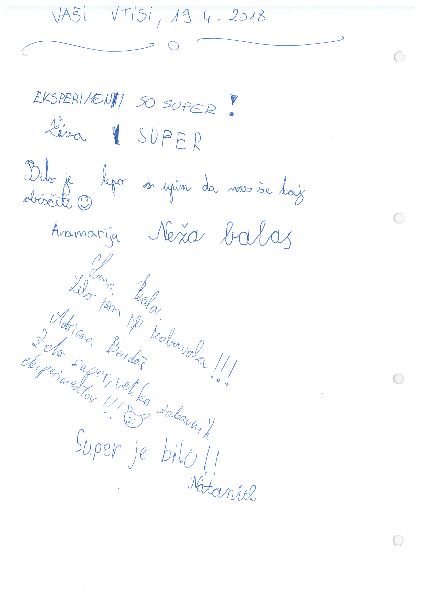 VAŠI VTISI, 19.4.2018
EKSPERIMENTI SO SUPER!
SUPER
Bilo je lepo in upim da nas še kaj
obiščete
Anamarija Neža balas
Ema, Kaja,
Zelo sem se zabavala!!!
Adriana
Zelo super, veliko zabavnih
eksperimentov!!!
Super je bilo!!
Nataniel